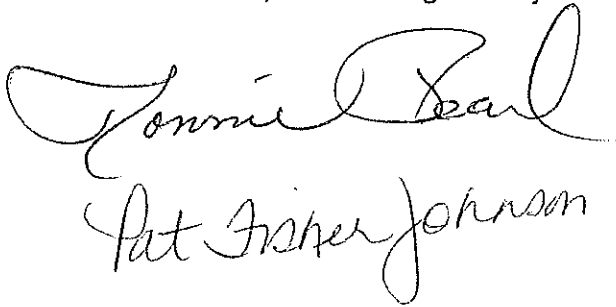 Ronnie Pearl
Pat Fisher Johnson